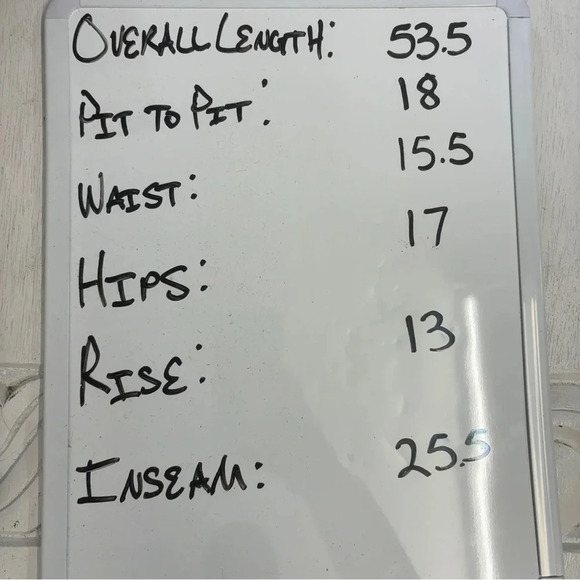 OVERALL LENGTH: 53.5
PIT TO PIT: 18
WAIST: 15.5
HIPS: 17
RISE: 13
INSEAM: 25.5